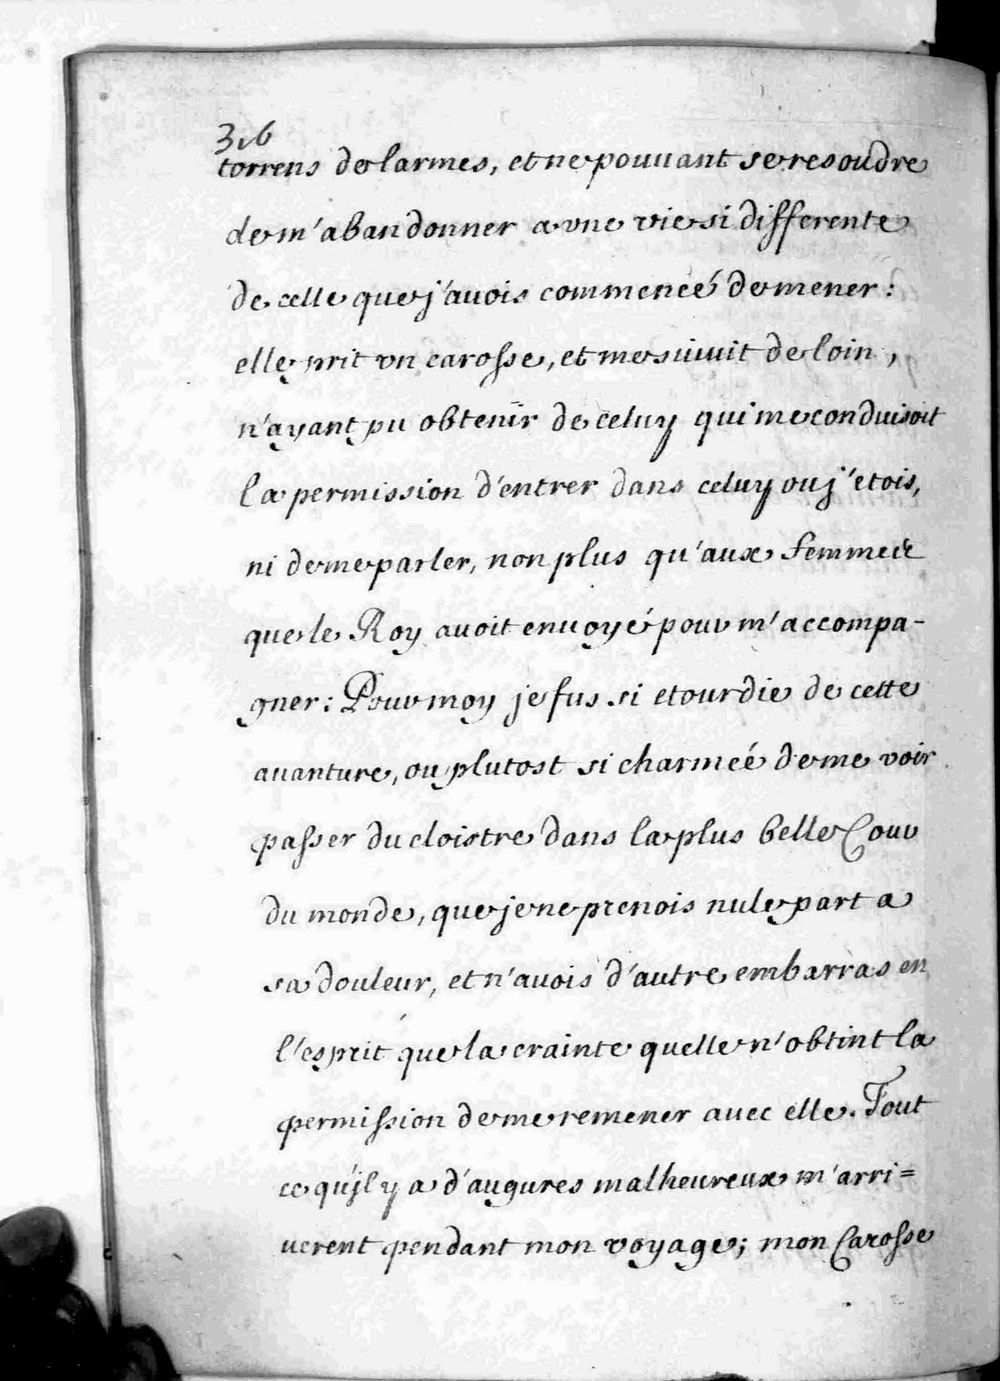 316
torrens de larmes, et ne pouuant se resoudre
de m'abandonner a vne vie si differente
de celle que j'auois commencé de mener :
elle prit vn carosse, et me suiuit de loin,
n'ayant pu obtenir de celuy qui me conduisoit
la permission d'entrer dans celuy ou j'etois,
ni de me parler, non plus qu'aux femmes
que le Roy auoit enuoyé pour m'accompa-
gner : Pour moy je fus si etourdie de cette
auanture, ou plutost si charmeé de me voir
passer du cloistre dans la plus belle Cour
du monde, que je ne prenois nule part a
sa douleur, et n'auois d'autre embarras en
l'esprit que la crainte quelle n'obtint la
permission de me remener auec elle. Tout
ce qu'jl y a d'augures malheureux m'arri=
uerent pendant mon voyage ; mon Carosse